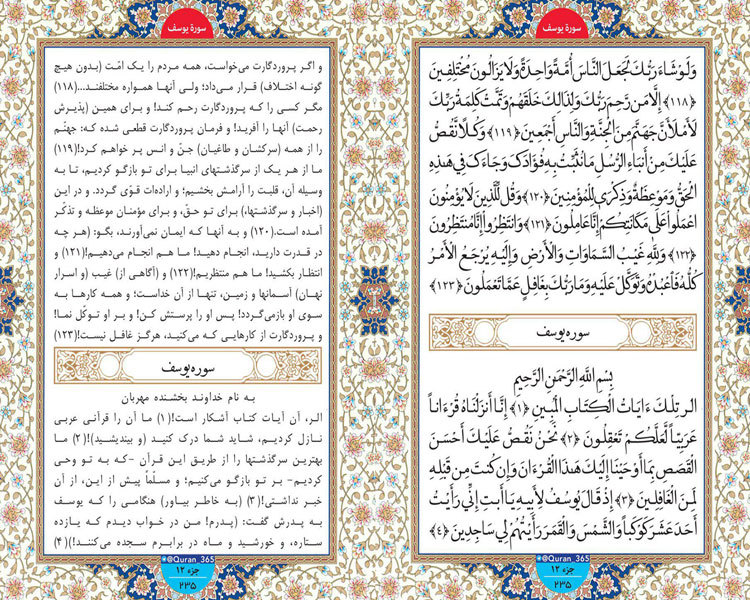 سورهٔ یوسف
وَلَوْ شَاءَ رَبُّكَ لَجَعَلَ النَّاسَ أُمَّةً وَاحِدَةً وَلَا يَزَالُونَ مُخْتَلِفِينَ
﴿۱۱۸﴾ إِلَّا مَن رَّحِمَ رَبُّكَ وَلِذَٰلِكَ خَلَقَهُمْ وَتَمَّتْ كَلِمَةُ رَبِّكَ
لَأَمْلَأَنَّ جَهَنَّمَ مِنَ الْجِنَّةِ وَالنَّاسِ أَجْمَعِينَ ﴿۱۱۹﴾ وَكُلًّا نَّقُصُّ
عَلَيْكَ مِنْ أَنبَاءِ الرُّسُلِ مَا نُثَبِّتُ بِهِ فُؤَادَكَ وَجَاءَكَ فِي هَٰذِهِ
الْحَقُّ وَمَوْعِظَةٌ وَذِكْرَىٰ لِلْمُؤْمِنِينَ ﴿۱۲۰﴾ وَقُل لِّلَّذِينَ لَا يُؤْمِنُونَ
اعْمَلُوا عَلَىٰ مَكَانَتِكُمْ إِنَّا عَامِلُونَ ﴿۱۲۱﴾ وَانتَظِرُوا إِنَّا مُنتَظِرُونَ
﴿۱۲۲﴾ وَلِلَّهِ غَيْبُ السَّمَاوَاتِ وَالْأَرْضِ وَإِلَيْهِ يُرْجَعُ الْأَمْرُ
كُلُّهُ فَاعْبُدْهُ وَتَوَكَّلْ عَلَيْهِ وَمَا رَبُّكَ بِغَافِلٍ عَمَّا تَعْمَلُونَ ﴿۱۲۳﴾
سوره یوسف
بِسْمِ اللَّهِ الرَّحْمَٰنِ الرَّحِيمِ
الر تِلْكَ ءَايَاتُ الْكِتَابِ الْمُبِينِ ﴿۱﴾ إِنَّا أَنزَلْنَاهُ قُرْءَاناً
عَرَبِيّاً لَّعَلَّكُمْ تَعْقِلُونَ ﴿۲﴾ نَحْنُ نَقُصُّ عَلَيْكَ أَحْسَنَ
الْقَصَصِ بِمَا أَوْحَيْنَا إِلَيْكَ هَٰذَا الْقُرْءَانَ وَإِن كُنتَ مِن قَبْلِهِ
لَمِنَ الْغَافِلِينَ ﴿۳﴾ إِذْ قَالَ يُوسُفُ لِأَبِيهِ يَا أَبَتِ إِنِّي رَأَيْتُ
أَحَدَ عَشَرَ كَوْكَباً وَالشَّمْسَ وَالْقَمَرَ رَأَيْتُهُمْ لِي سَاجِدِينَ ﴿۴﴾
@Quran_365
جزء ۱۲
۲۳۵
سورهٔ یوسف
و اگر پروردگارت می‌خواست، همه مردم را یک امّت (بدون هیچ
گونه اختلاف) قرار می‌داد؛ ولی آنها همواره مختلفند...(۱۱۸)
مگر کسی را که پروردگارت رحم کند! و برای همین (پذیرش
رحمت) آنها را آفرید! و فرمان پروردگارت قطعی شده که: جهنّم
را از همه (سرکشان و طاغیان) جنّ و انس پر خواهم کرد!(۱۱۹)
ما از هر یک از سرگذشتهای انبیا برای تو بازگو کردیم، تا به
وسیله آن، قلبت را آرامش بخشیم؛ و اراده‌ات قوّی گردد. و در این
(اخبار و سرگذشتها)، برای تو حقّ، و برای مؤمنان موعظه و تذکّر
آمده است.(۱۲۰) و به آنها که ایمان نمی‌آورند، بگو: (هر چه
در قدرت دارید، انجام دهید! ما هم انجام می‌دهیم!(۱۲۱) و
انتظار بکشید! ما هم منتظریم!(۱۲۲) و (آگاهی از) غیب (و اسرار
نهان) آسمانها و زمین، تنها از آن خداست؛ و همه کارها به
سوی او بازمی‌گردد! پس او را پرستش کن! و بر او توکّل نما!
و پروردگارت از کارهایی که می‌کنید، هرگز غافل نیست!(۱۲۳)
سوره یوسف
به نام خداوند بخشنده مهربان
الر، آن آیات کتاب آشکار است!(۱) ما آن را قرآنی عربی
نازل کردیم، شاید شما درک کنید (و بیندیشید)!(۲) ما
بهترین سرگذشتها را از طریق این قرآن -که به تو وحی
کردیم- بر تو بازگو می‌کنیم؛ و مسلّماً پیش از این، از آن
خبر نداشتی!(۳) (به خاطر بیاور) هنگامی را که یوسف
به پدرش گفت: (پدرم! من در خواب دیدم که یازده
ستاره، و خورشید و ماه در برابرم سجده می‌کنند!)(۴)
@Quran_365
جزء ۱۲
۲۳۵